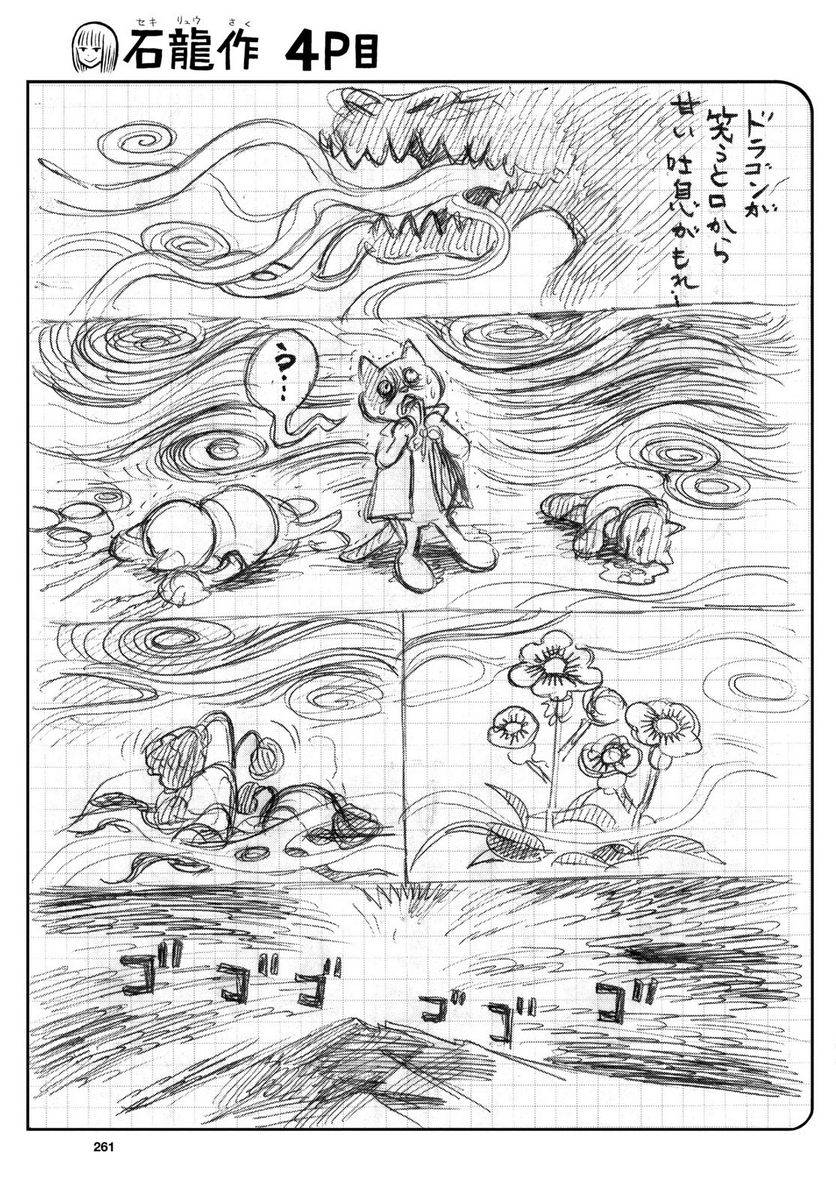 セキ リュウ さく
石龍作 4P目
ドラゴンが
笑うと口から
甘い吐息がもれ…
う…
ゴゴゴゴゴゴ
261